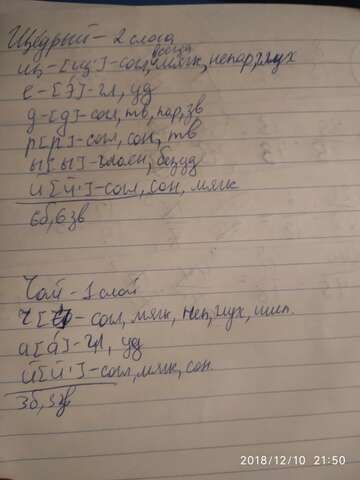 Щедрый - 2 слога
щ - [щ'] - согл, всегда мягк, непар, глух
е - [э́] - гл, уд
д - [д] - согл, тв, пар, зв
р [р] - согл, сон, тв
ы [ы] - гласн, безуд
й [й'] - согл, сон, мягк
6б, 6зв
Чай - 1 слог
ч [ч'] - согл, мягк, неп, глух, шип.
а [а́] - гл, уд
й [й'] - согл, мягк, сон.
3б, 3зв
2018/12/10 21:50